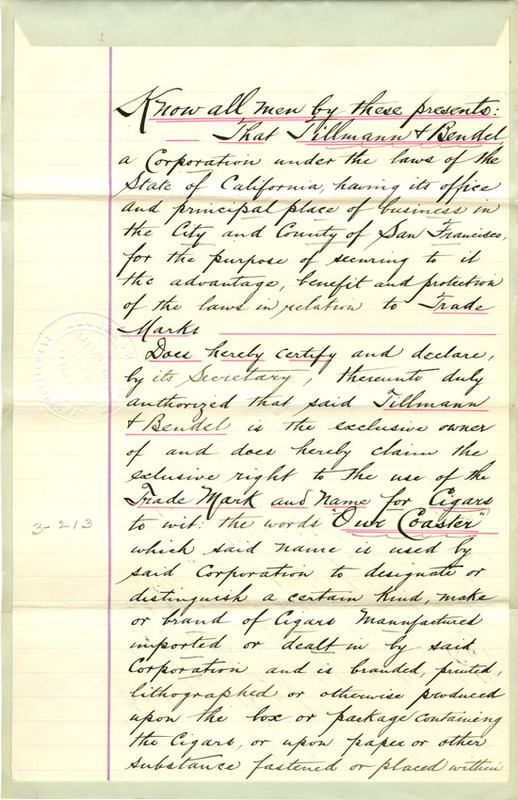 Know all men by these presents:
That Tillmann & Bendel
a Corporation under the laws of the
State of California, having its office
and principal place of business in
the City and County of San Francisco,
for the purpose of securing to it
the advantage, benefit and protection
of the laws in relation to Trade
Marks
Does hereby certify and declare,
by its Secretary, thereunto duly
authorized that said Tillmann
& Bendel is the exclusive owner
of and does hereby claim the
exclusive right to the use of the
Trade Mark and Name for Cigars
3-213
to wit: the words "Our Coaster"
which said name is used by
said Corporation to designate or
distinguish a certain Kind, make
or brand of Cigars Manufactured
imported or dealt in by said
Corporation and is branded, printed,
lithographed or otherwise produced
upon the box or package containing
the Cigars, or upon paper or other
substance fastened or placed within